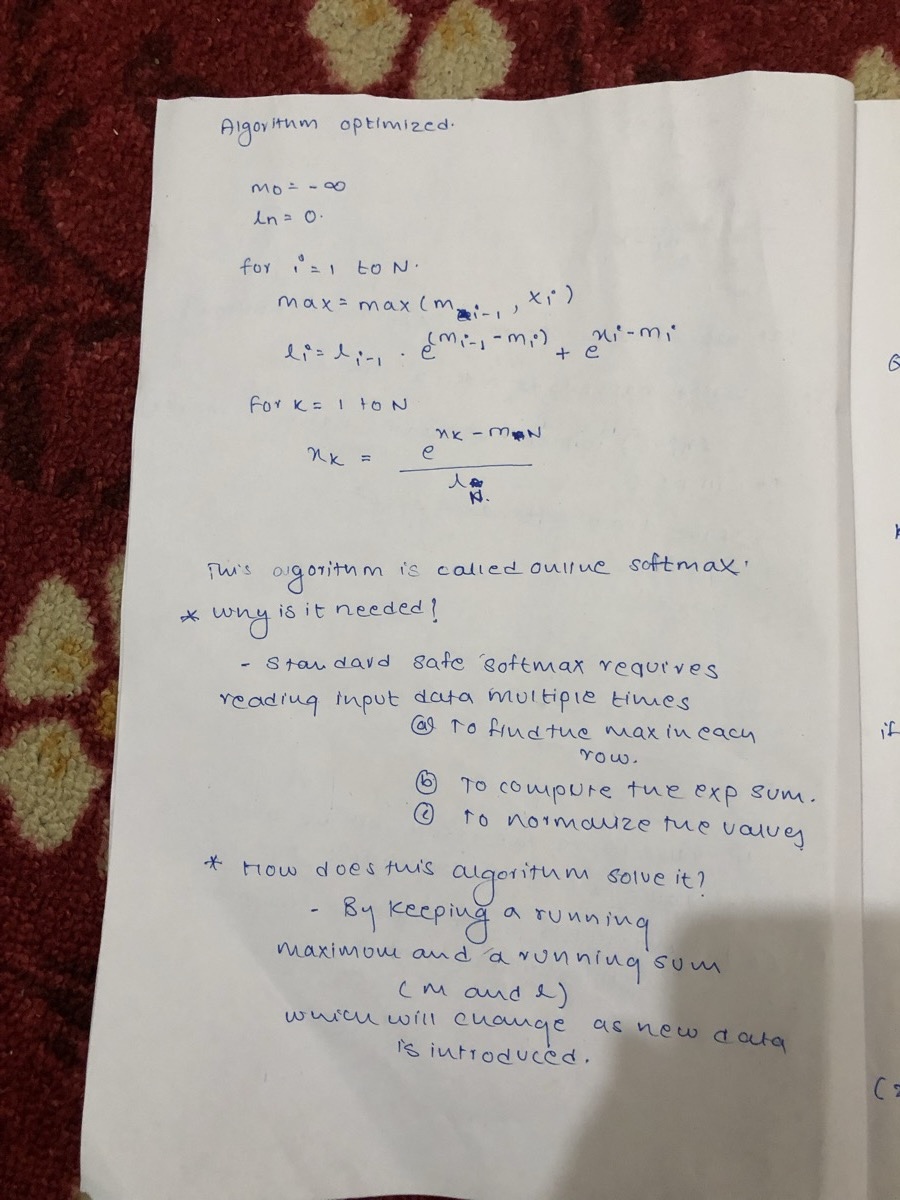 Algorithm optimized.
m0 = -∞
ln = 0.
for i = 1 to N.
max = max (m i-1 , xi)
li = li-1 . e^(mi-1 - mi) + e^xi - mi
For k = 1 to N
xk = e^xk - mN / lN.
This algorithm is called online softmax.
* Why is it needed?
- Standard safe softmax requires
reading input data multiple times
(a) To find the max in each
row.
(b) To compute the exp sum.
(c) To normalize the values
* How does this algorithm solve it?
- By keeping a running
maximum and a running sum
(m and l)
which will change as new data
is introduced.
if
(2